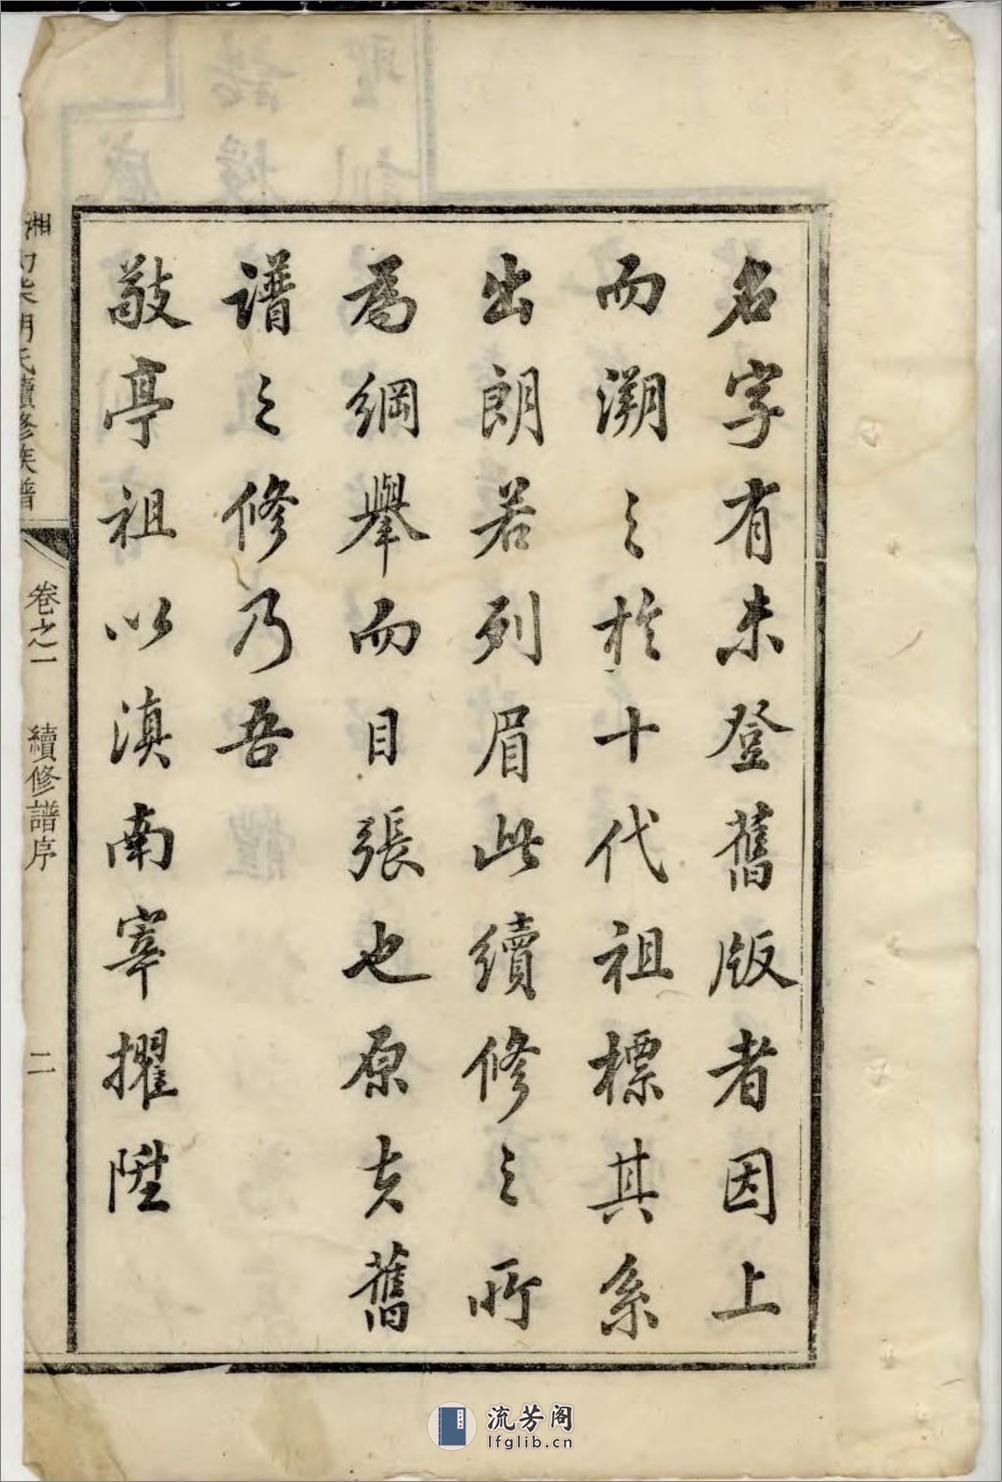 名字有未登舊版者因上
而溯之於十代祖標其系
出朗若列眉此續修之所
爲綱舉而目張也原夫舊
譜之修乃吾
敬亭祖以滇南宰擢陞
湘
氏續修族譜
卷之一
續修譜序
二
流芳阁
lfglib.cn